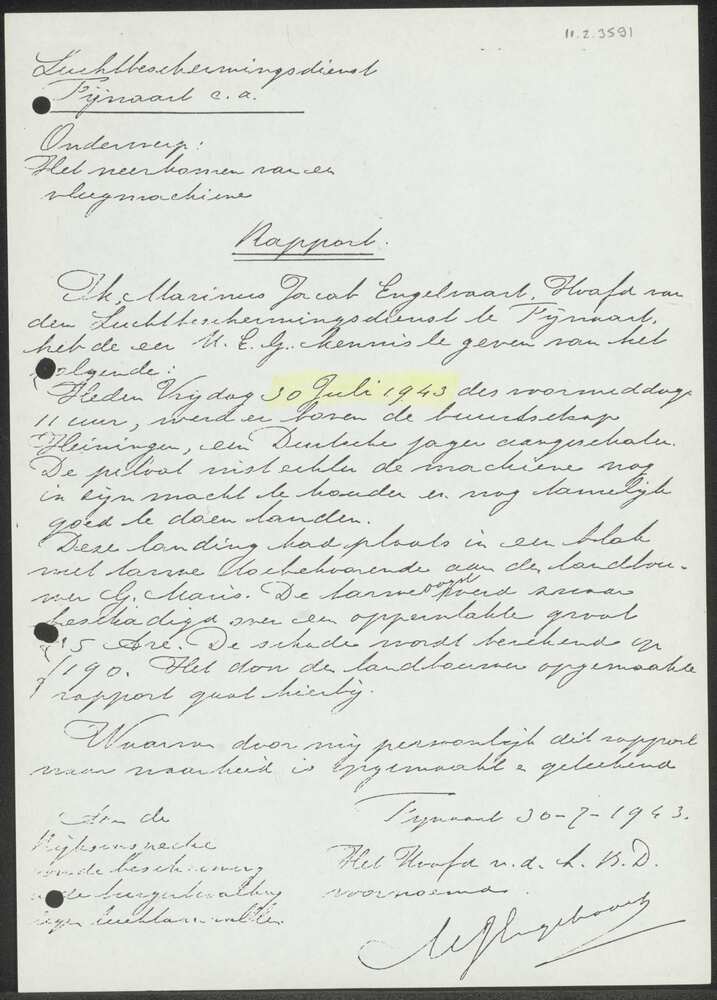 11.2.3591
Luchtbeschermingsdienst
Fijnaart c.a.
Onderwerp:
Het neerkomen van een
vliegmachiene
Rapport.
Ik, Marinus Jacob Engelvaart, Hoofd van
den Luchtbeschermingsdienst te Fijnaart,
heb de eer U.E.G. kennis te geven van het
volgende:
Heden Vrijdag 30 Juli 1943 des voormiddags
11 uur, werd er boven de buurtschap
Heiningen, een Duitsche jager aangeschoten.
De piloot wist echter de machiene nog
in zijn macht te houden en nog tamelijk
goed te doen landen.
Deze landing had plaats in een blok
met tarwe toebehoorende aan den landbou-
wer G. Maris. De tarweoogst werd zwaar
beschadigd over een oppervlakte groot
5 Are. De schade wordt berekend op
f 190. Het door den landbouwer opgemaakte
rapport gaat hierbij.
Waarvan door mij persoonlijk dit rapport
naar waarheid is opgemaakt en geteekend
Fijnaart 30-7-1943.
Aan de
Rijksinspectie
van de bescherming
van de burgerbevolking
tegen luchtaanvallen.
Het Hoofd v.d. L.B.D.
voornoemd.